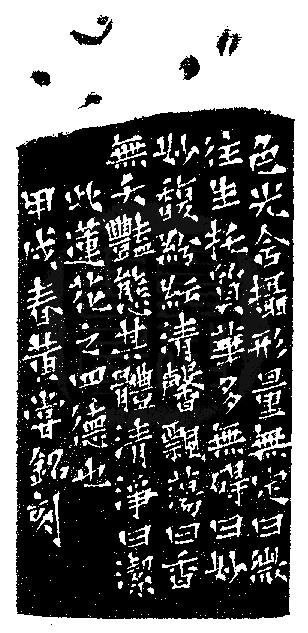 色光含攝形量無定曰微
往生托質華多無礙曰妙
妙馥紛紜清馨飄蕩曰香
無夭豔態其體清淨曰潔
此蓮花之四德也
甲戌春黃嘗銘刻